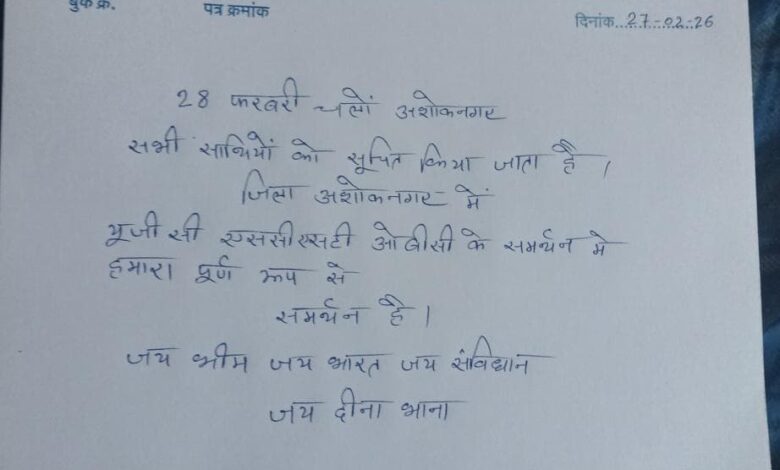 बुक क्र. पत्र क्रमांक दिनांक..27-02-26
28 फरवरी चलों अशोकनगर
सभी साथियों को सूचित किया जाता है।
जिला अशोकनगर में
यूजीसी एससीएसटी ओबीसी के समर्थन मे
हमारा पूर्ण रूप से
समर्थन है।
जय भीम जय भारत जय संविधान
जय दीना भाना